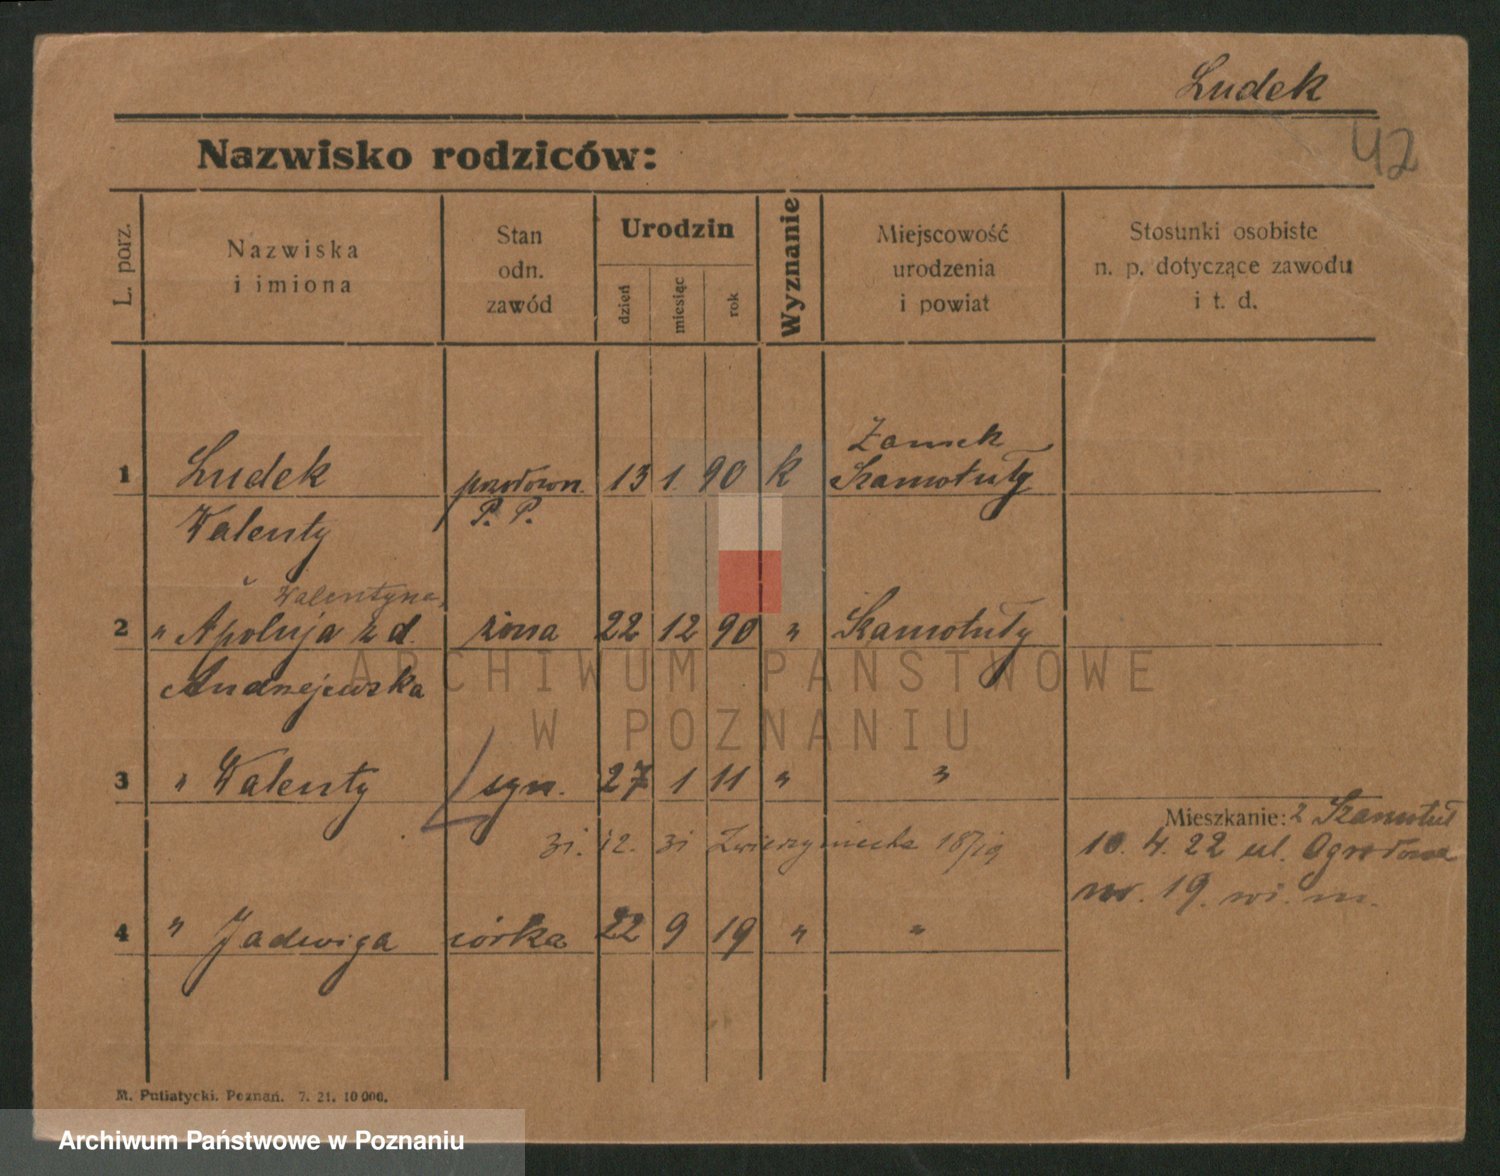 Ludek
42
Nazwisko rodziców:
L. porz.
Nazwiska
i imiona
Stan
odn.
zawód
Urodzin
dzień
miesiąc
rok
Wyznanie
Miejscowość
urodzenia
i powiat
Stosunki osobiste
n. p. dotyczące zawodu
i t. d.
Zamek
1 Ludek przodown. 13 1. 90 k Szamotuły
Walenty P. P.
Walentyna
2 " Apolnja z d. żona 22 12 90 " Szamotuły
Andrzejewska
ARCHIWUM PAŃSTWOWE
W POZNANIU
3 " Walenty syn. 27 1 11 " "
Mieszkanie: z Szamotuł
31. 12. 31 Zwierzyniecka 18/19
10. 4. 22 ul. Ogrodowa
nr. 19. wi. m.
4 " Jadwiga córka 22 9 19 " "
M. Putiatycki. Poznań. 7. 21. 10 000.
Archiwum Państwowe w Poznaniu